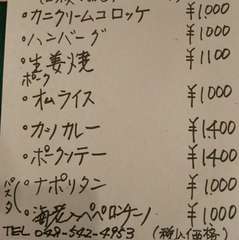 ・カニクリームコロッケ ¥1,000
・ハンバーグ ¥1000
・生姜焼 ¥1100
ポーク
・オムライス ¥1000
・カツカレー ¥1400
・ポークソテー ¥1400
パスタ(・ナポリタン ¥1000
・海老ペペロンチーノ ¥1000
TEL 048-542-4953 (税込価格)